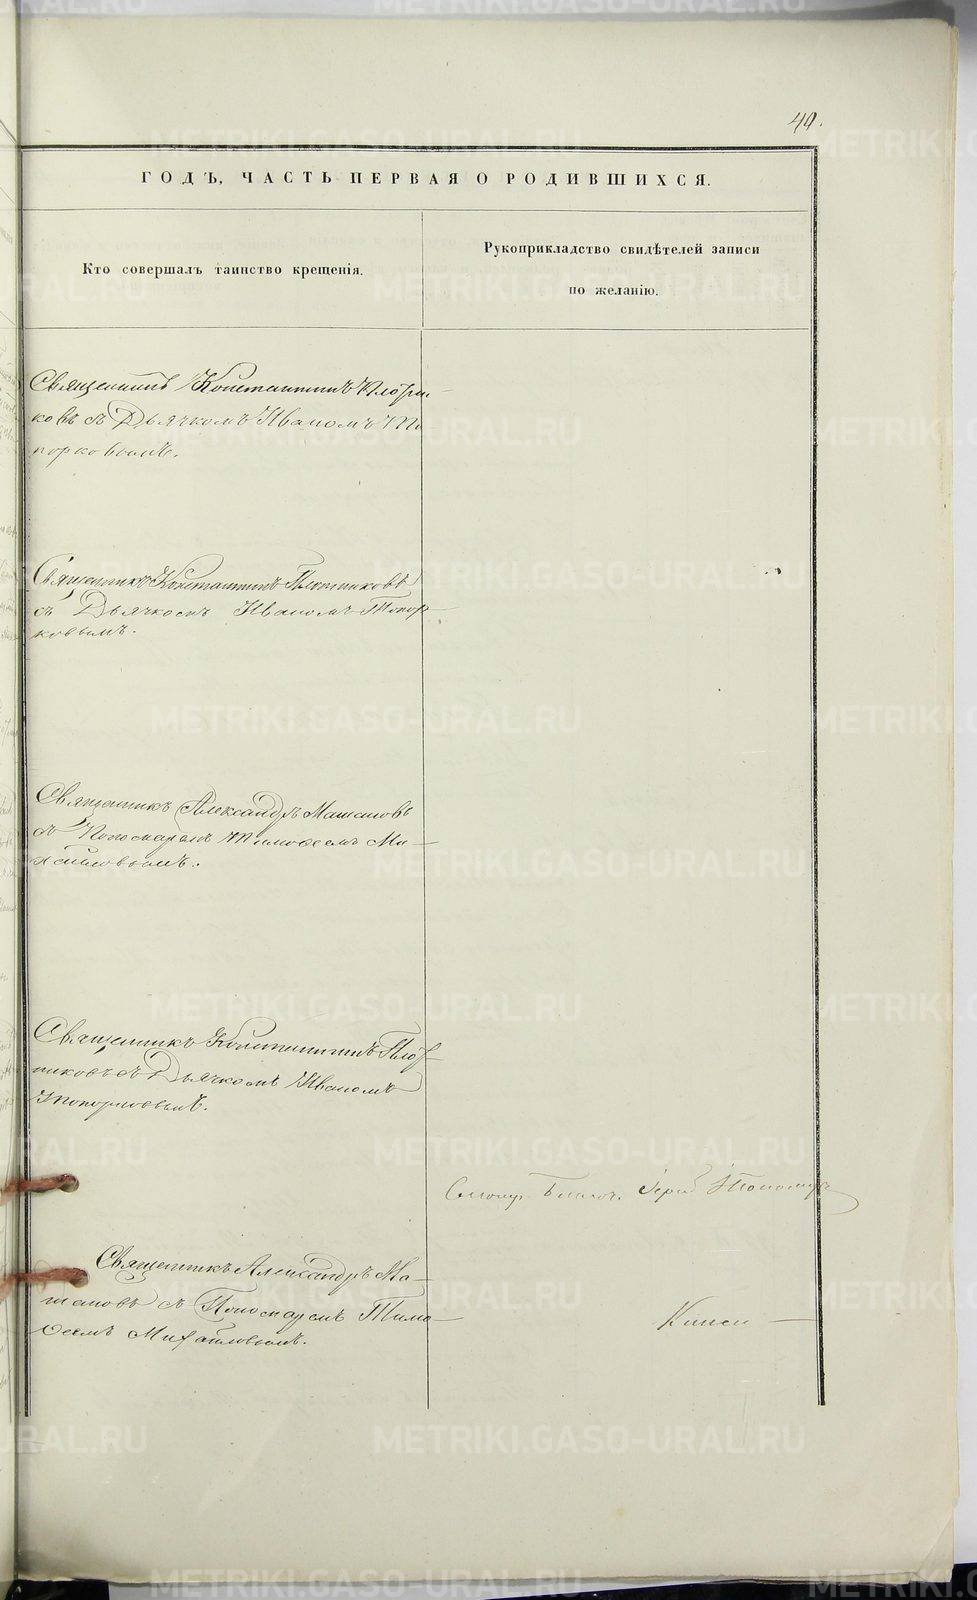 49.
ГОДЪ, ЧАСТЬ ПЕРВАЯ О РОДИВШИХСЯ.
Кто совершалъ таинство крещенія.
Рукоприкладство свидѣтелей записи
по желанію.
Священникъ Константинъ Плотни-
ковъ съ Дьячкомъ Иваномъ То
порковымъ.
Священникъ Константинъ Плотниковъ
съ Дьячкомъ Иваномъ Топор-
ковымъ.
Священникъ Александръ
съ Пономаремъ Тимофеемъ Ми-
хайловымъ.
Священникъ Константинъ Плот-
никовъ съ Дьячкомъ Иваномъ
Топорковымъ.
Священникъ Александръ Ма-
съ Пономаремъ Тимо-
феемъ Михайловымъ.
METRIKI.GASO-URAL.RU